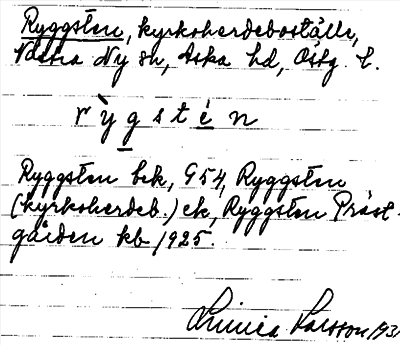 Ryggsten, kyrkoherdeboställe,
Västra Ny sn, Aska hd, Östg. l.
rỳgstén
Ryggsten bek, G54, Ryggsten
(kyrkoherdeb.) ek, Ryggsten Präst-
gården kb 1925.
Linnea Larsson 193